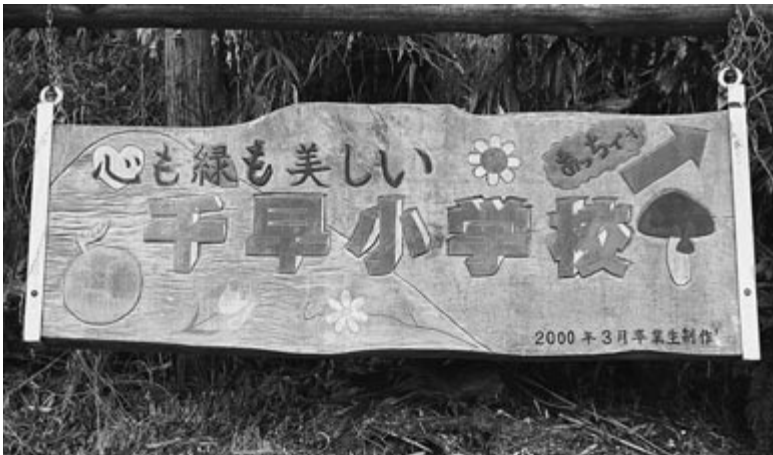 心も緑も美しい
あっちやで
千早小学校
2000年3月卒業生制作